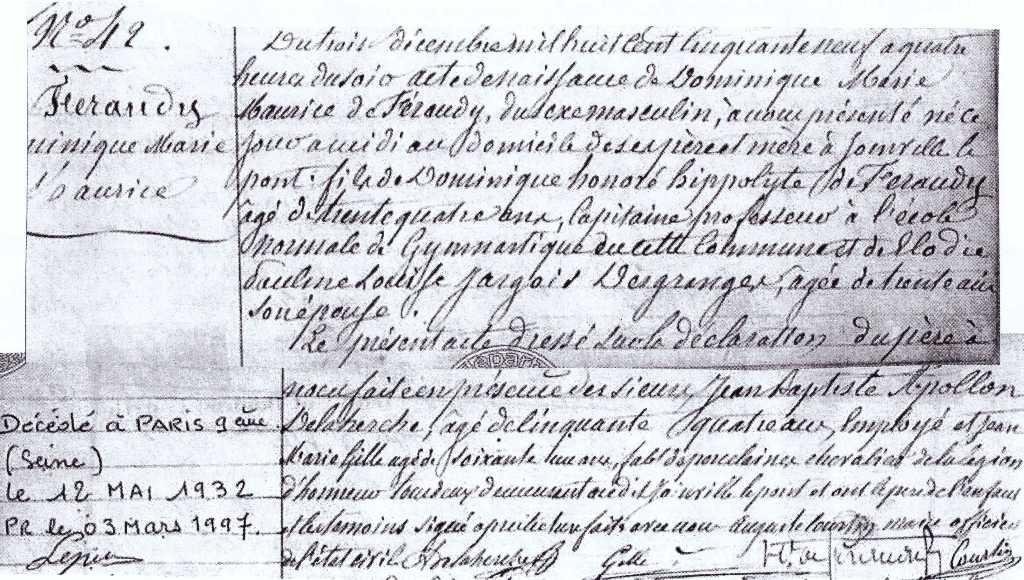 N° 42.
Feraudy
inique Marie
Maurice
Du trois décembre mil huit cent cinquante neuf a quatre
heures du soir acte de naissance de Dominique Marie
Maurice de Féraudy, du sexe masculin, à nous présenté né ce
jour a midi au domicile de ses père et mère à Joinville le
pont ; fils de Dominique honoré hippolyte de Feraudy
âgé de trente quatre ans, Capitaine professeur à l'école
normale de Gymnastique de cette Commune et de Elodie
Pauline Louise Jargois Desgranges, agée de trente ans
son épouse.
Le présent acte dressé sur la déclaration du père à
nous faite en présence des sieurs Jean Baptiste Apollon
Delaherche, âgé de cinquante quatre ans, Employé et Jean
Marie Gille agé de soixante ans, fabt de porcelaines chevalier de la légion
d'honneur tous deux demeurant audit Joinville le pont et ont le père de l'enfant
et les temoins signé après lecture faite avec nous Auguste Courtin maire officier
de l'état civil Delaherche Gille Hte de Feraudy Courtin
Décédé à PARIS 9ème
(Seine)
le 12 MAI 1932
PR le 03 Mars 1997.